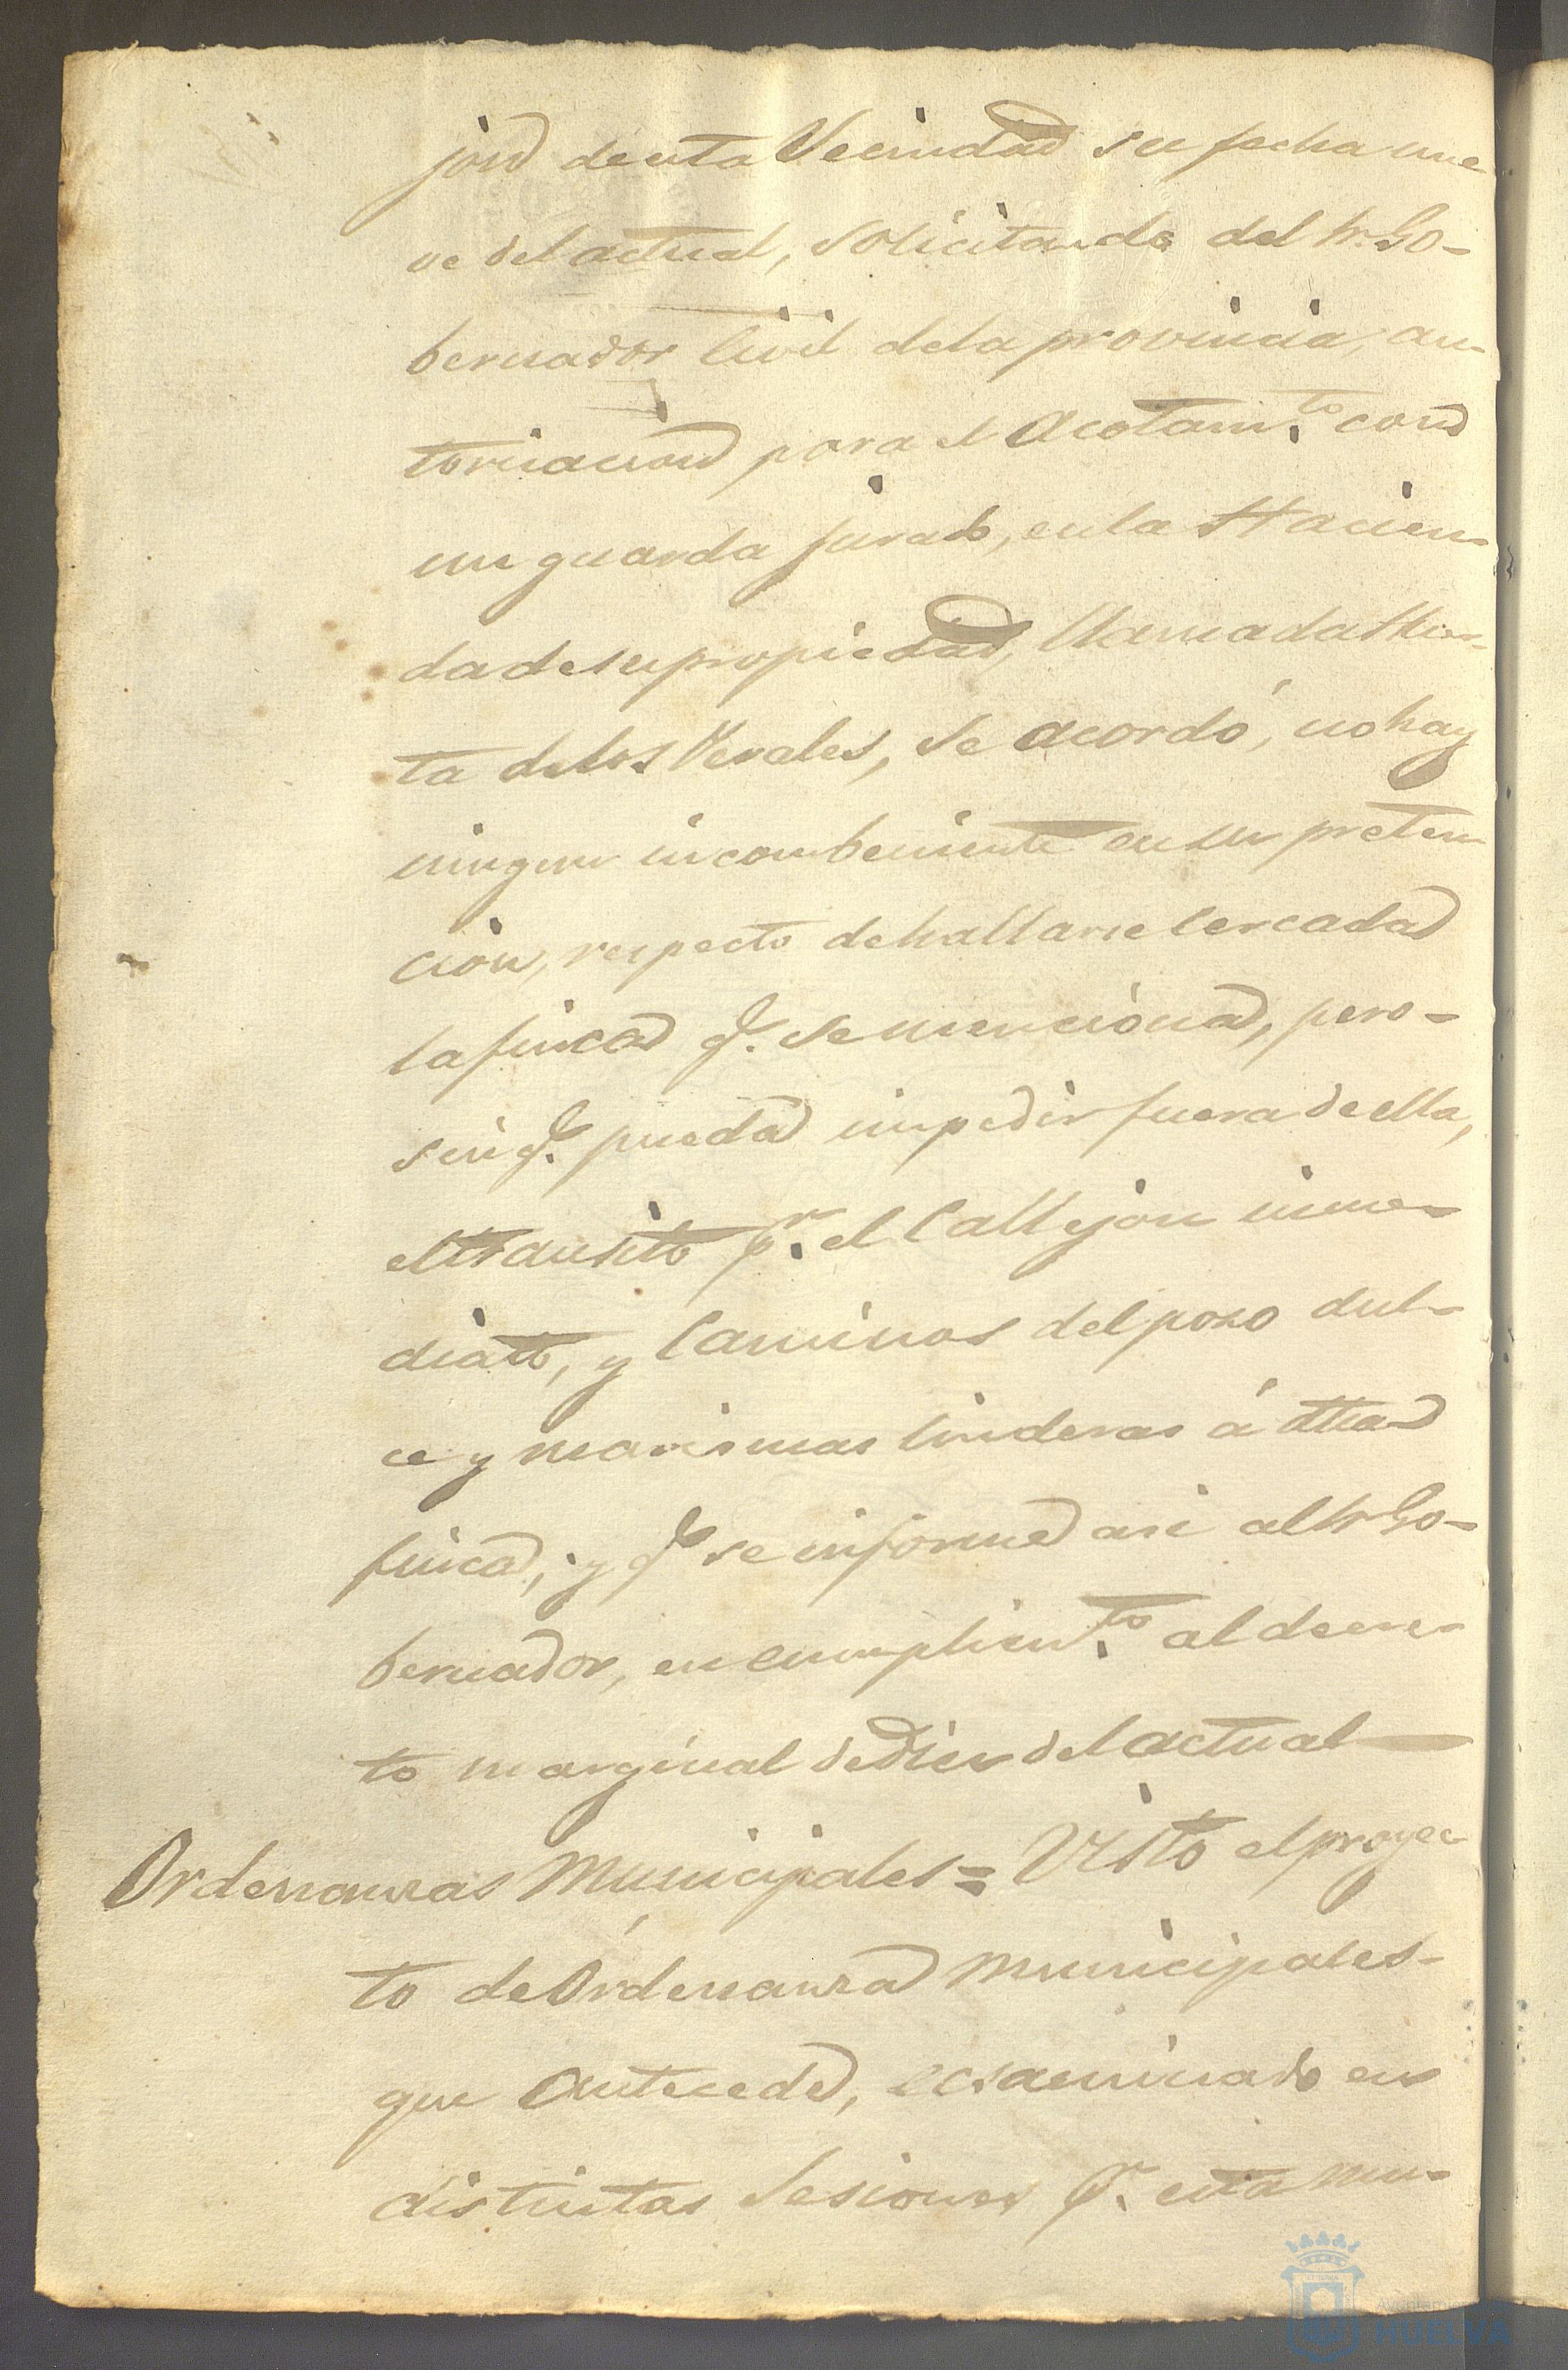 jon de esta Vecindad su fecha nue
ve del actual, solicitando del Sr. Go-
bernador Civil de la provincia, au-
torizacion para el Acotamto. con
un guarda jurado, en la Hacien-
da de su propiedad, llamada Huer-
ta de los Perales, se acordó, no hay
ningun incombeniente en su preten
cion, respecto de hallarse cercada
la finca q. se menciona, pero-
sin q. pueda impedir fuera de ella,
el transito pr. el Callejon inme-
diato, y Caminos del poso dul-
ce y marismas linderas á dha
finca; y q. se informe asi al Sr. Go-
bernador, en cumplimto. al decre-
to marginal de Diez del actual
Ordenanzas Municipales = Visto el proyec
to de Ordenanza Municipales-
que antecede, ecsaminado en
distintas Sesiones pr. esta mu-
Ayuntamiento
HUELVA